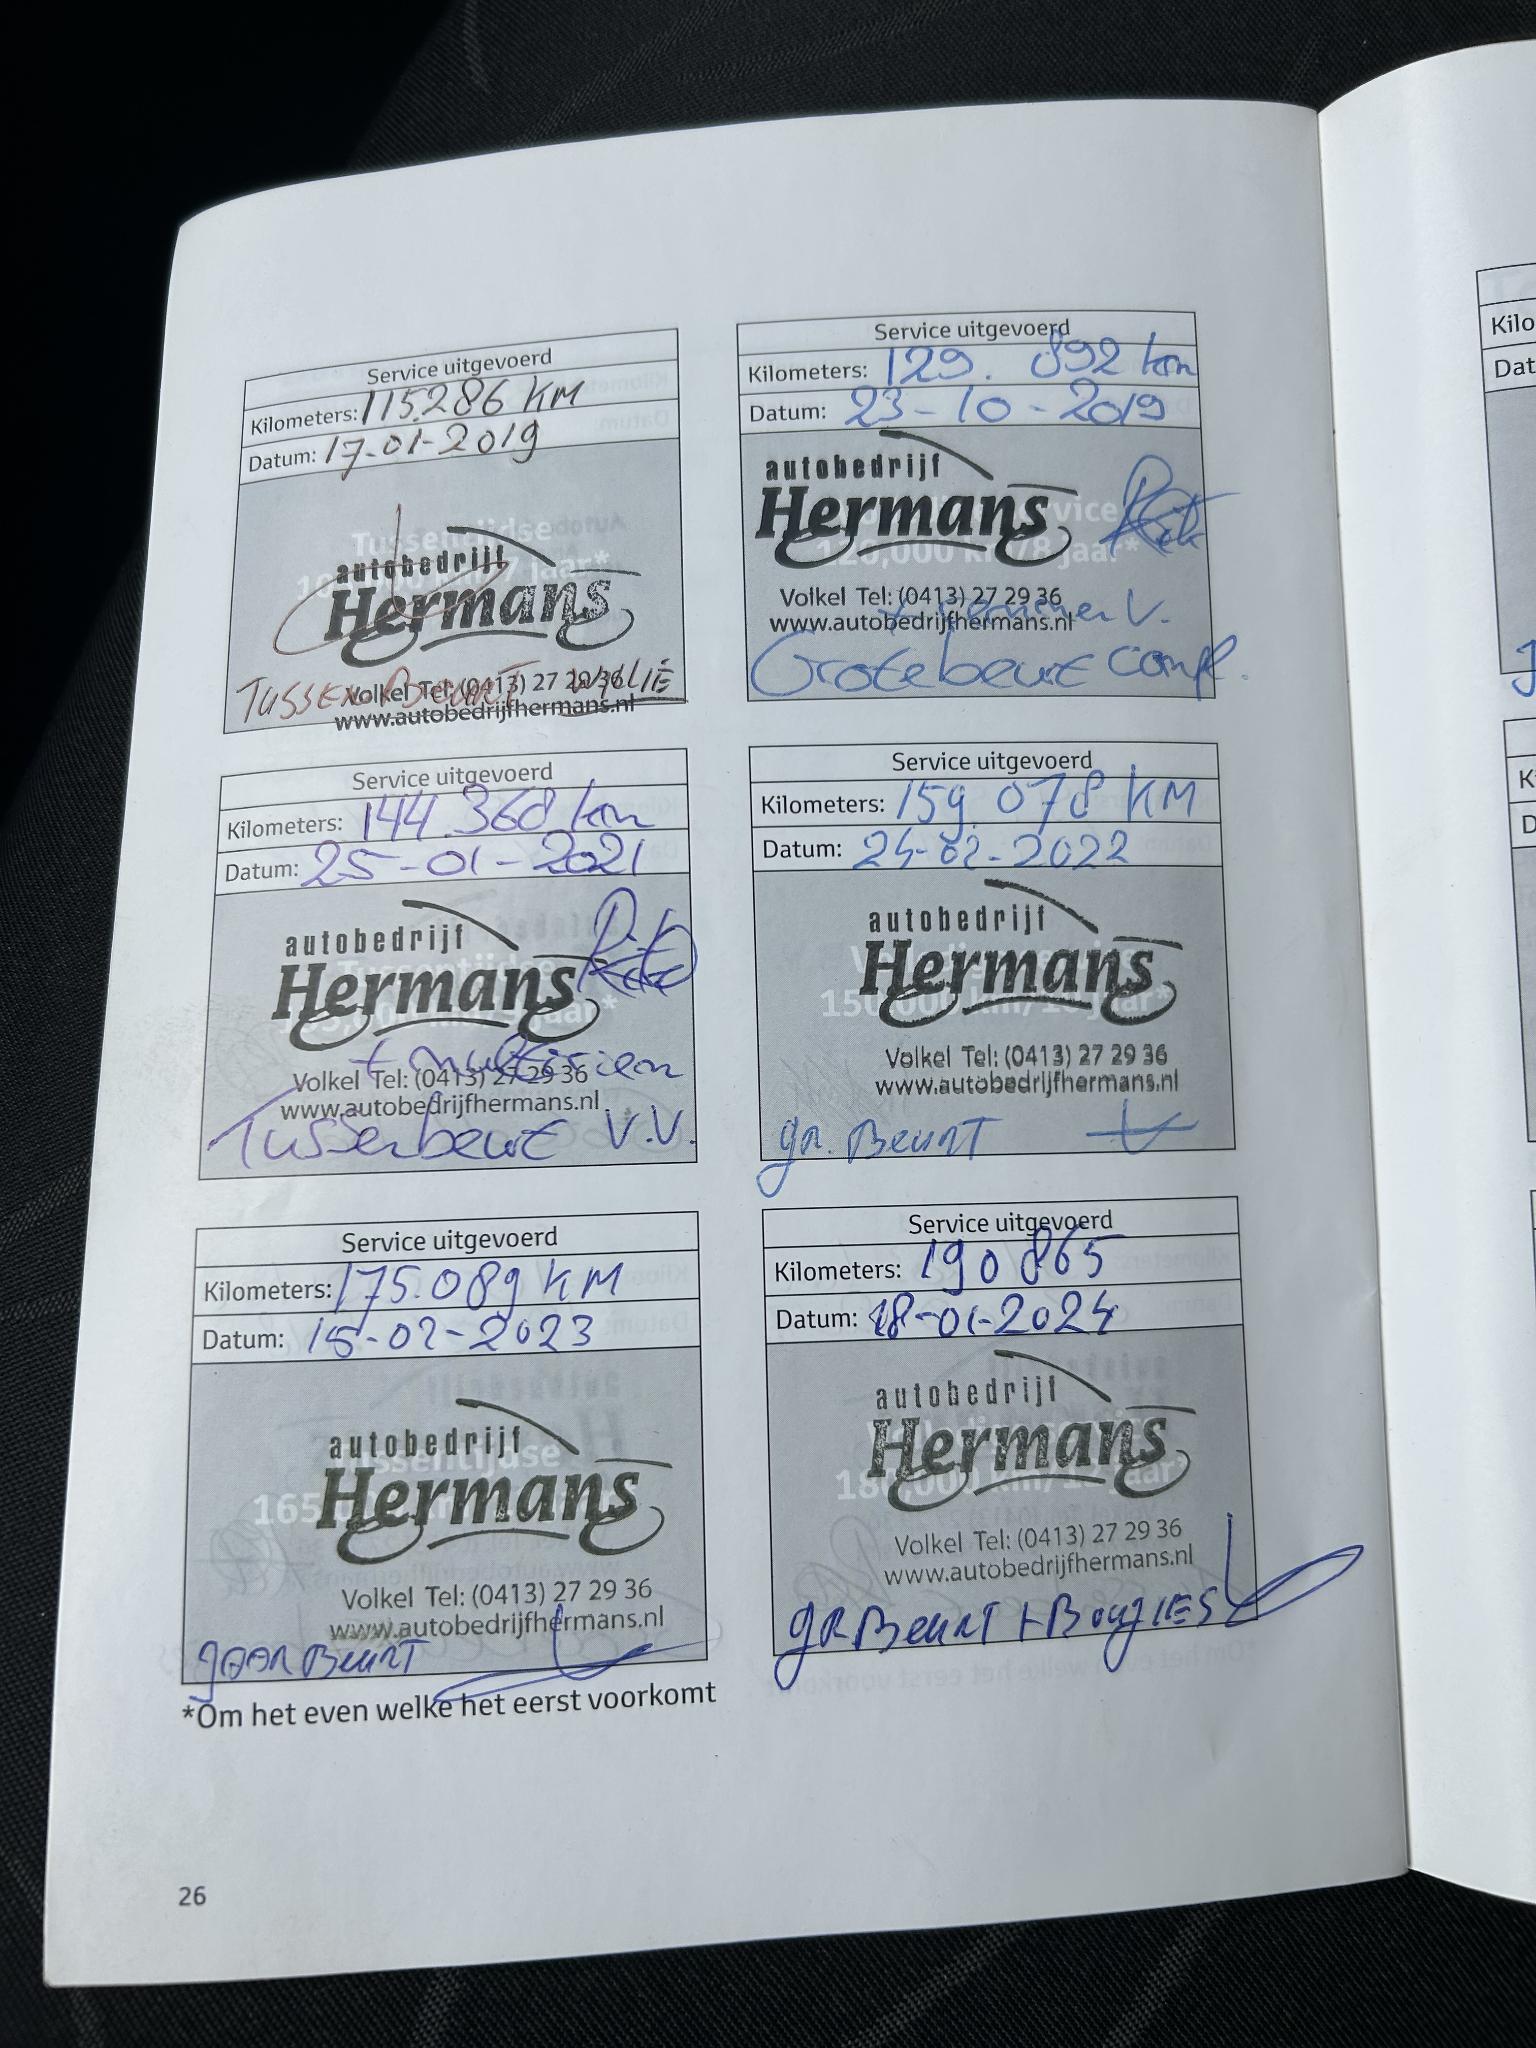 Service uitgevoerd
Kilometers: 115.286 KM
Datum: 17-01-2019
Tussentijdse
autobedrijf
Hermans
Volkel Tel: (0413) 27 29 36
www.autobedrijfhermans.nl
TUSSEN BEURT
Service uitgevoerd
Kilometers: 129.892 km
Datum: 23-10-2019
autobedrijf
Hermans
120,000 km/8 jaar*
Volkel Tel: (0413) 27 29 36
www.autobedrijfhermans.nl
Grote beurt compl.
Service uitgevoerd
Kilometers: 144.368 km
Datum: 25-01-2021
autobedrijf
Hermans
Tussentijdse
Volkel Tel: (0413) 27 29 36
www.autobedrijfhermans.nl
Tussenbeurt V.V.
Service uitgevoerd
Kilometers: 159.078 KM
Datum: 24-02-2022
autobedrijf
Hermans
Volkel Tel: (0413) 27 29 36
www.autobedrijfhermans.nl
gr. BEURT
Service uitgevoerd
Kilometers: 175.089 KM
Datum: 15-02-2023
autobedrijf
Tussentijdse
Hermans
Volkel Tel: (0413) 27 29 36
www.autobedrijfhermans.nl
Service uitgevoerd
Kilometers: 190 865
Datum: 18-01-2024
autobedrijf
Hermans
Volkel Tel: (0413) 27 29 36
www.autobedrijfhermans.nl
gR BEURT + BOUGIES
*Om het even welke het eerst voorkomt
26
Kilo
Dat